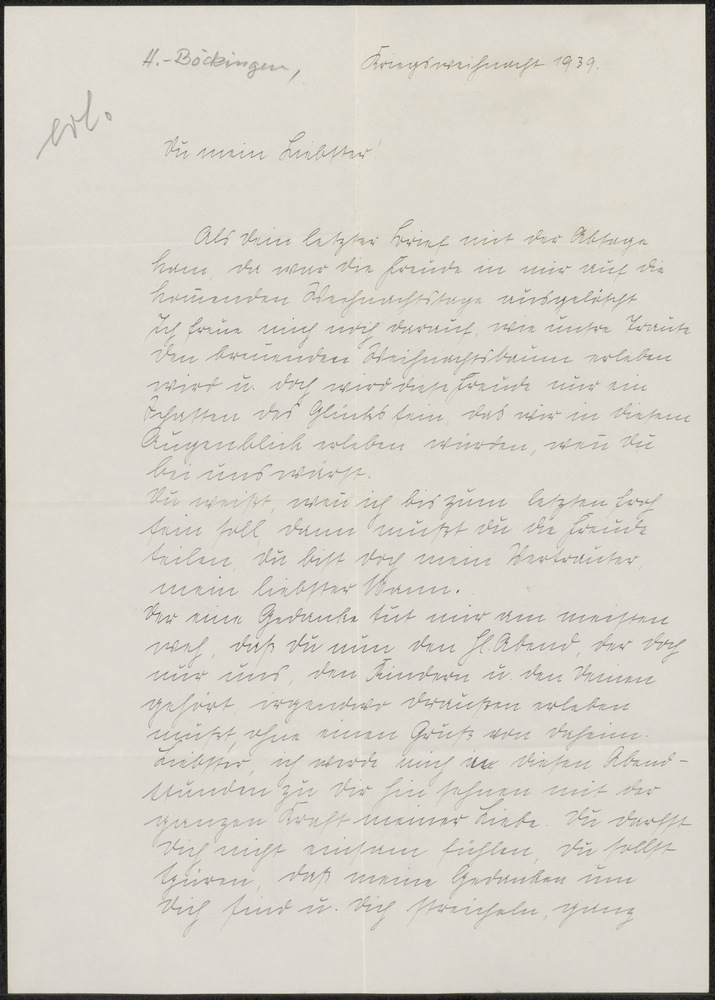 H.-Böckingen,
Kriegsweihnacht 1939.
erl.
Du mein Liebster!
Als dein letzter Brief mit der Absage
kam, da war die Freude in mir auf die
kom̅enden Weihnachtstage ausgelöscht
Ich freue mich noch darauf, wie unsre Traute
den brennenden Weihnachtsbaum erleben
wird u. doch wird diese Freude nur ein
Schatten des Glücks sein, das wir in diesem
Augenblick erleben würden, wen̅ Du
bei uns wärst.
Du weißt, wen̅ ich bis zum letzten froh
sein soll, dann mußt Du die Freude
teilen, Du bist doch mein Vertrauter,
mein liebster Mann.
Der eine Gedanke tut mir am meisten
weh, daß Du nun den Hl. Abend, der doch
nur uns, den Kindern u. den Deinen
gehört, irgendwo draußen erleben
mußt, ohne einen Gruß von daheim.
Liebster, ich werde mich in diesen Abend-
stunden zu Dir hin sehnen mit der
ganzen Kraft meiner Liebe. Du darfst
Dich nicht einsam fühlen, Du sollst
spüren, daß meine Gedanken um
Dich sind u. Dich streicheln, ganz